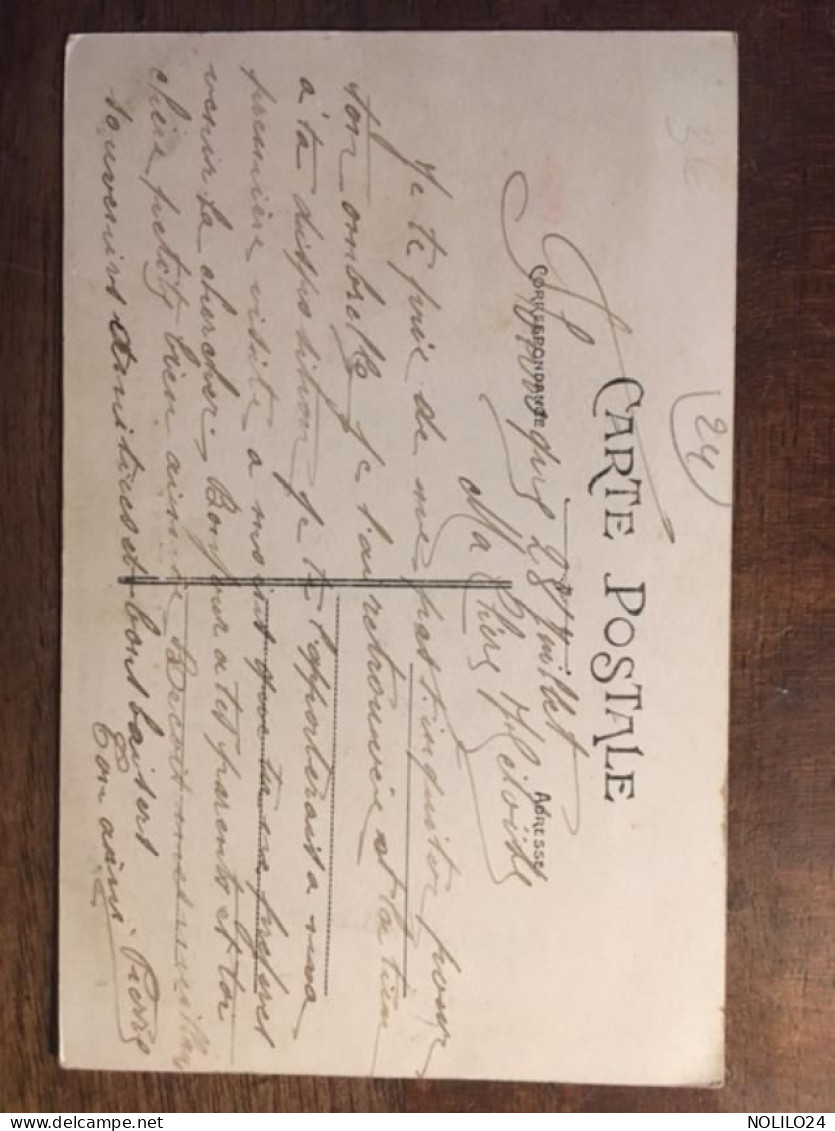 CARTE POSTALE
CORRESPONDANCE
ADRESSE
24
3€
28 Juillet
Ma Chère Héloïse
Je te prie de ne pas t'inquiéter pour
ton ombrelle je l'ai retrouvée et la tien
à ta disposition je te l'apporterais a ma
première visite a moins que tu ne préfères
venir la chercher. Bonjour a tes parents et toi
chère petite bien aimée Recoit mes meilleurs
souvenirs amitiées et bons baisers
Ton ami Pierre
NOLILO24